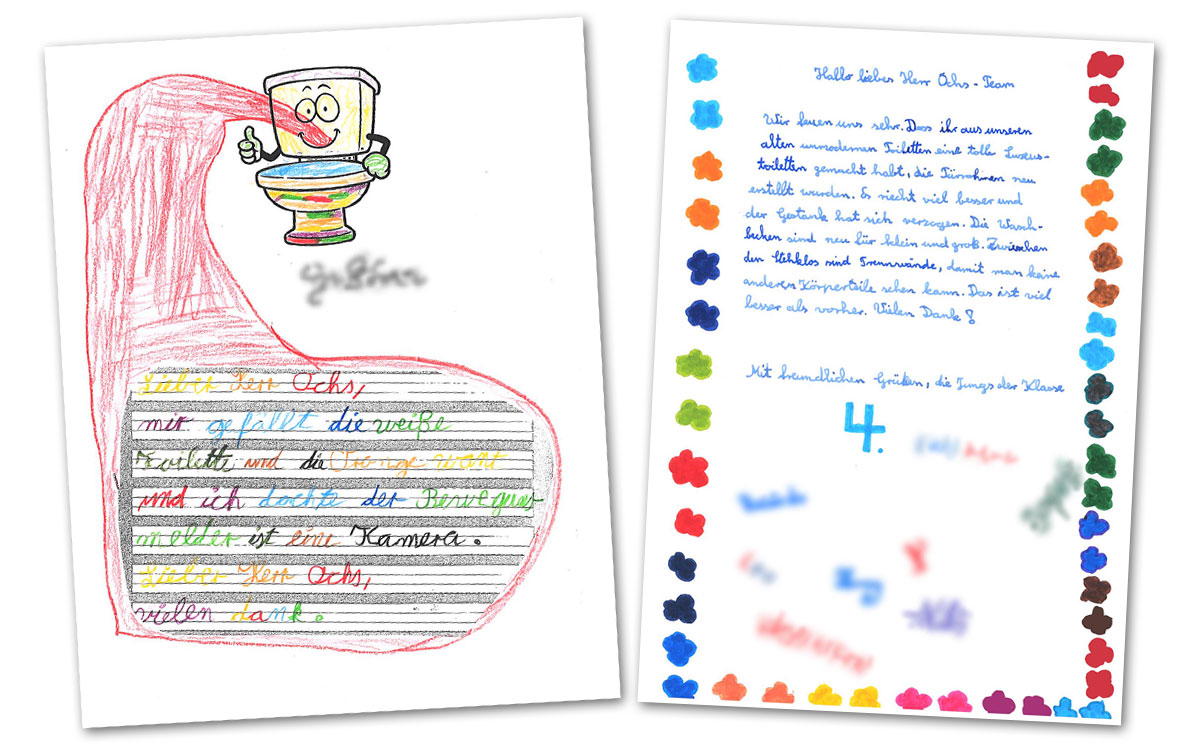 Lieber Herr Ochs,
mir gefällt die weiße
Toilette und die Orange want
und ich dachte der Bewegugs
melder ist eine Kamera.
Lieber Herr Ochs,
vielen dank.
Hallo lieber Herr Ochs - Team
Wir feuen uns sehr. Dass ihr aus unseren
alten unmodernen Toiletten eine tolle Luxus-
toiletten gemacht habt, die Türrahmen neu
erstellt wurden. Es riecht viel besser und
der Gestank hat sich verzogen. Die Wasch-
becken sind neu für klein und groß. Zwischen
den Stehklos sind Trennwände, damit man keine
anderen Körperteile sehen kann. Das ist viel
besser als vorher. Vielen Dank!
Mit freundlichen Grüßen, die Jungs der Klasse
4.